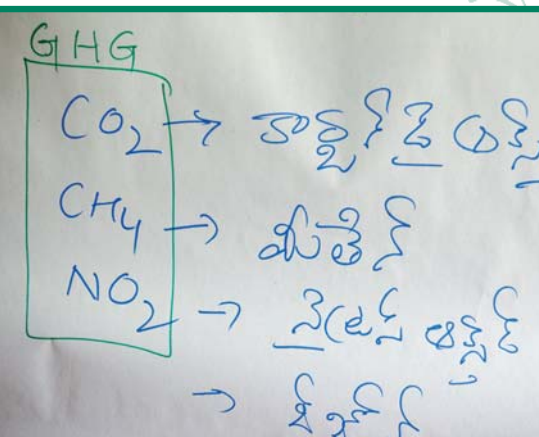 GHG
CO2 → కార్బన్ డై ఆక్స్
CH4 → మీతేన్
NO2 → నైట్రస్ ఆక్సైడ్
→